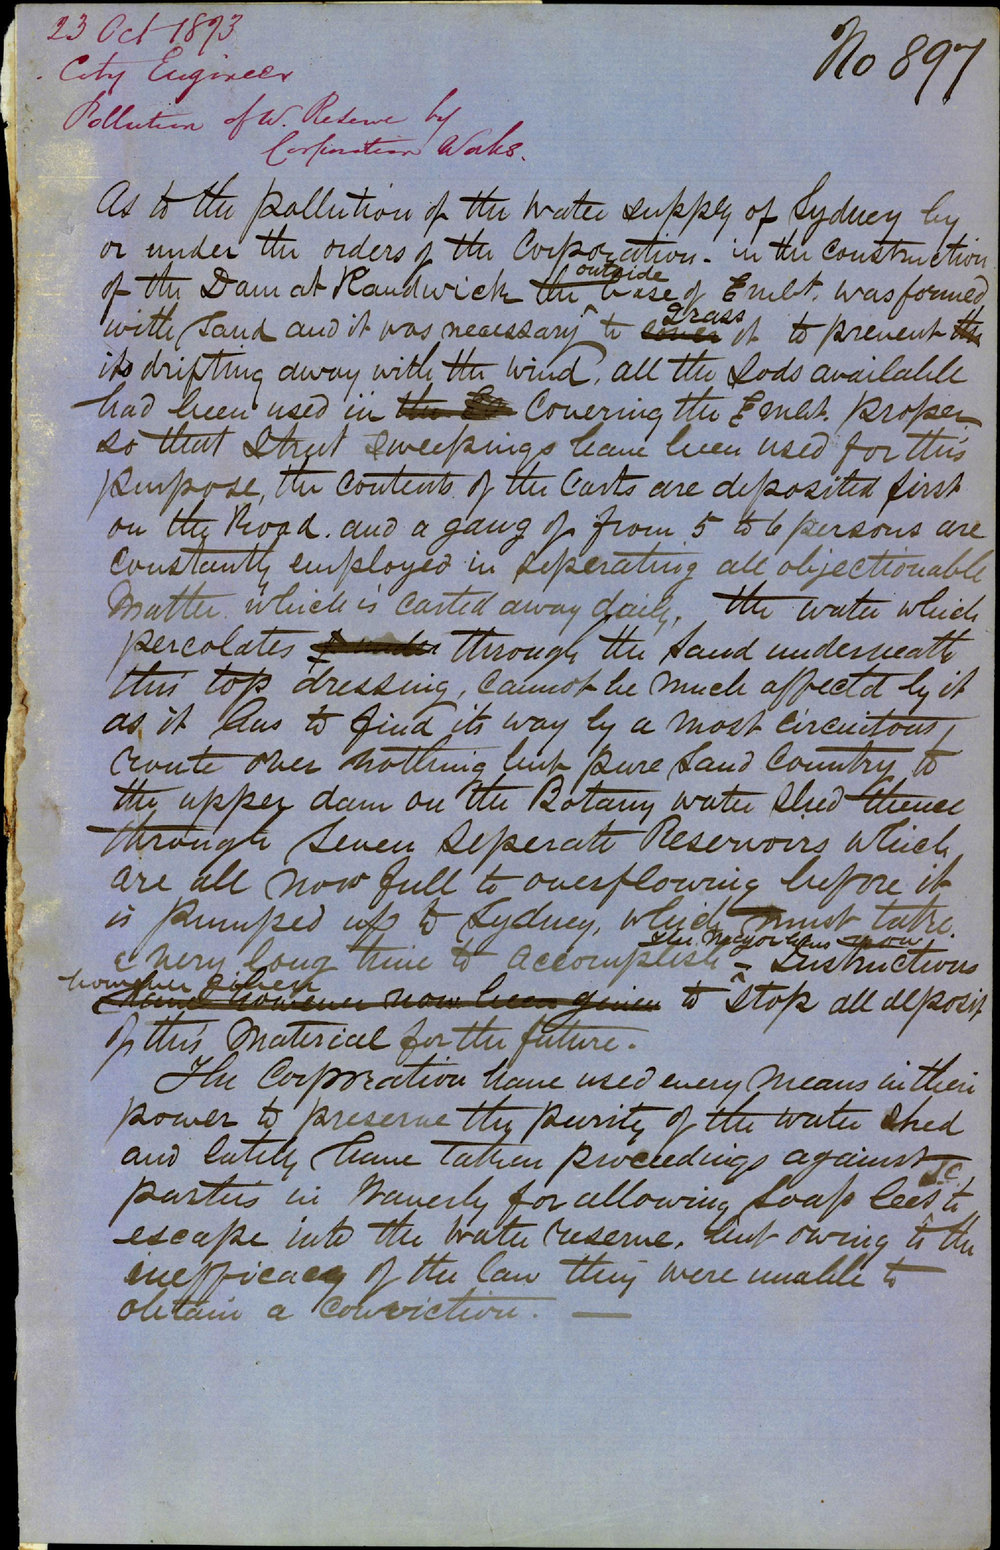 23 Oct 1873
City Engineer
Pollution of W. Reserve by
Corporation Works.
No 897
As to the pollution of the water supply of Sydney by
or under the orders of the Corporation - in the construction
outside
of the Dam at Randwick the base of Embt. was formed
Grass
with Sand and it was necessary to cover it to prevent the
its drifting away with the wind, all the Sods available
had been used in the Covering the Embt. proper
so that Street Sweepings have been used for this
purpose, the contents of the Carts are deposited first
on the Road. and a gang of from 5 to 6 persons are
constantly employed in seperating all objectionable
Matter which is carted away daily, the water which
percolates through the Sand underneath
this top dressing, cannot be much affected by it
as it has to find its way by a most circuitous
route over nothing but pure Sand Country to
the upper dam on the Botany water shed thence
through seven seperate Reservoirs which
are all now full to overflowing before it
is pumped up to Sydney, which must take
the Mayor has now
a very long time to accomplish - Instructions
however given
have however now been given to stop all deposit
of this material for the future.
The Corporation have used every means in their
power to preserve the purity of the water shed
and lately have taken proceedings against
&c
parties in Waverly for allowing Soap lees to
escape into the water reserve, but owing to the
inefficacy of the law they were unable to
obtain a conviction. —